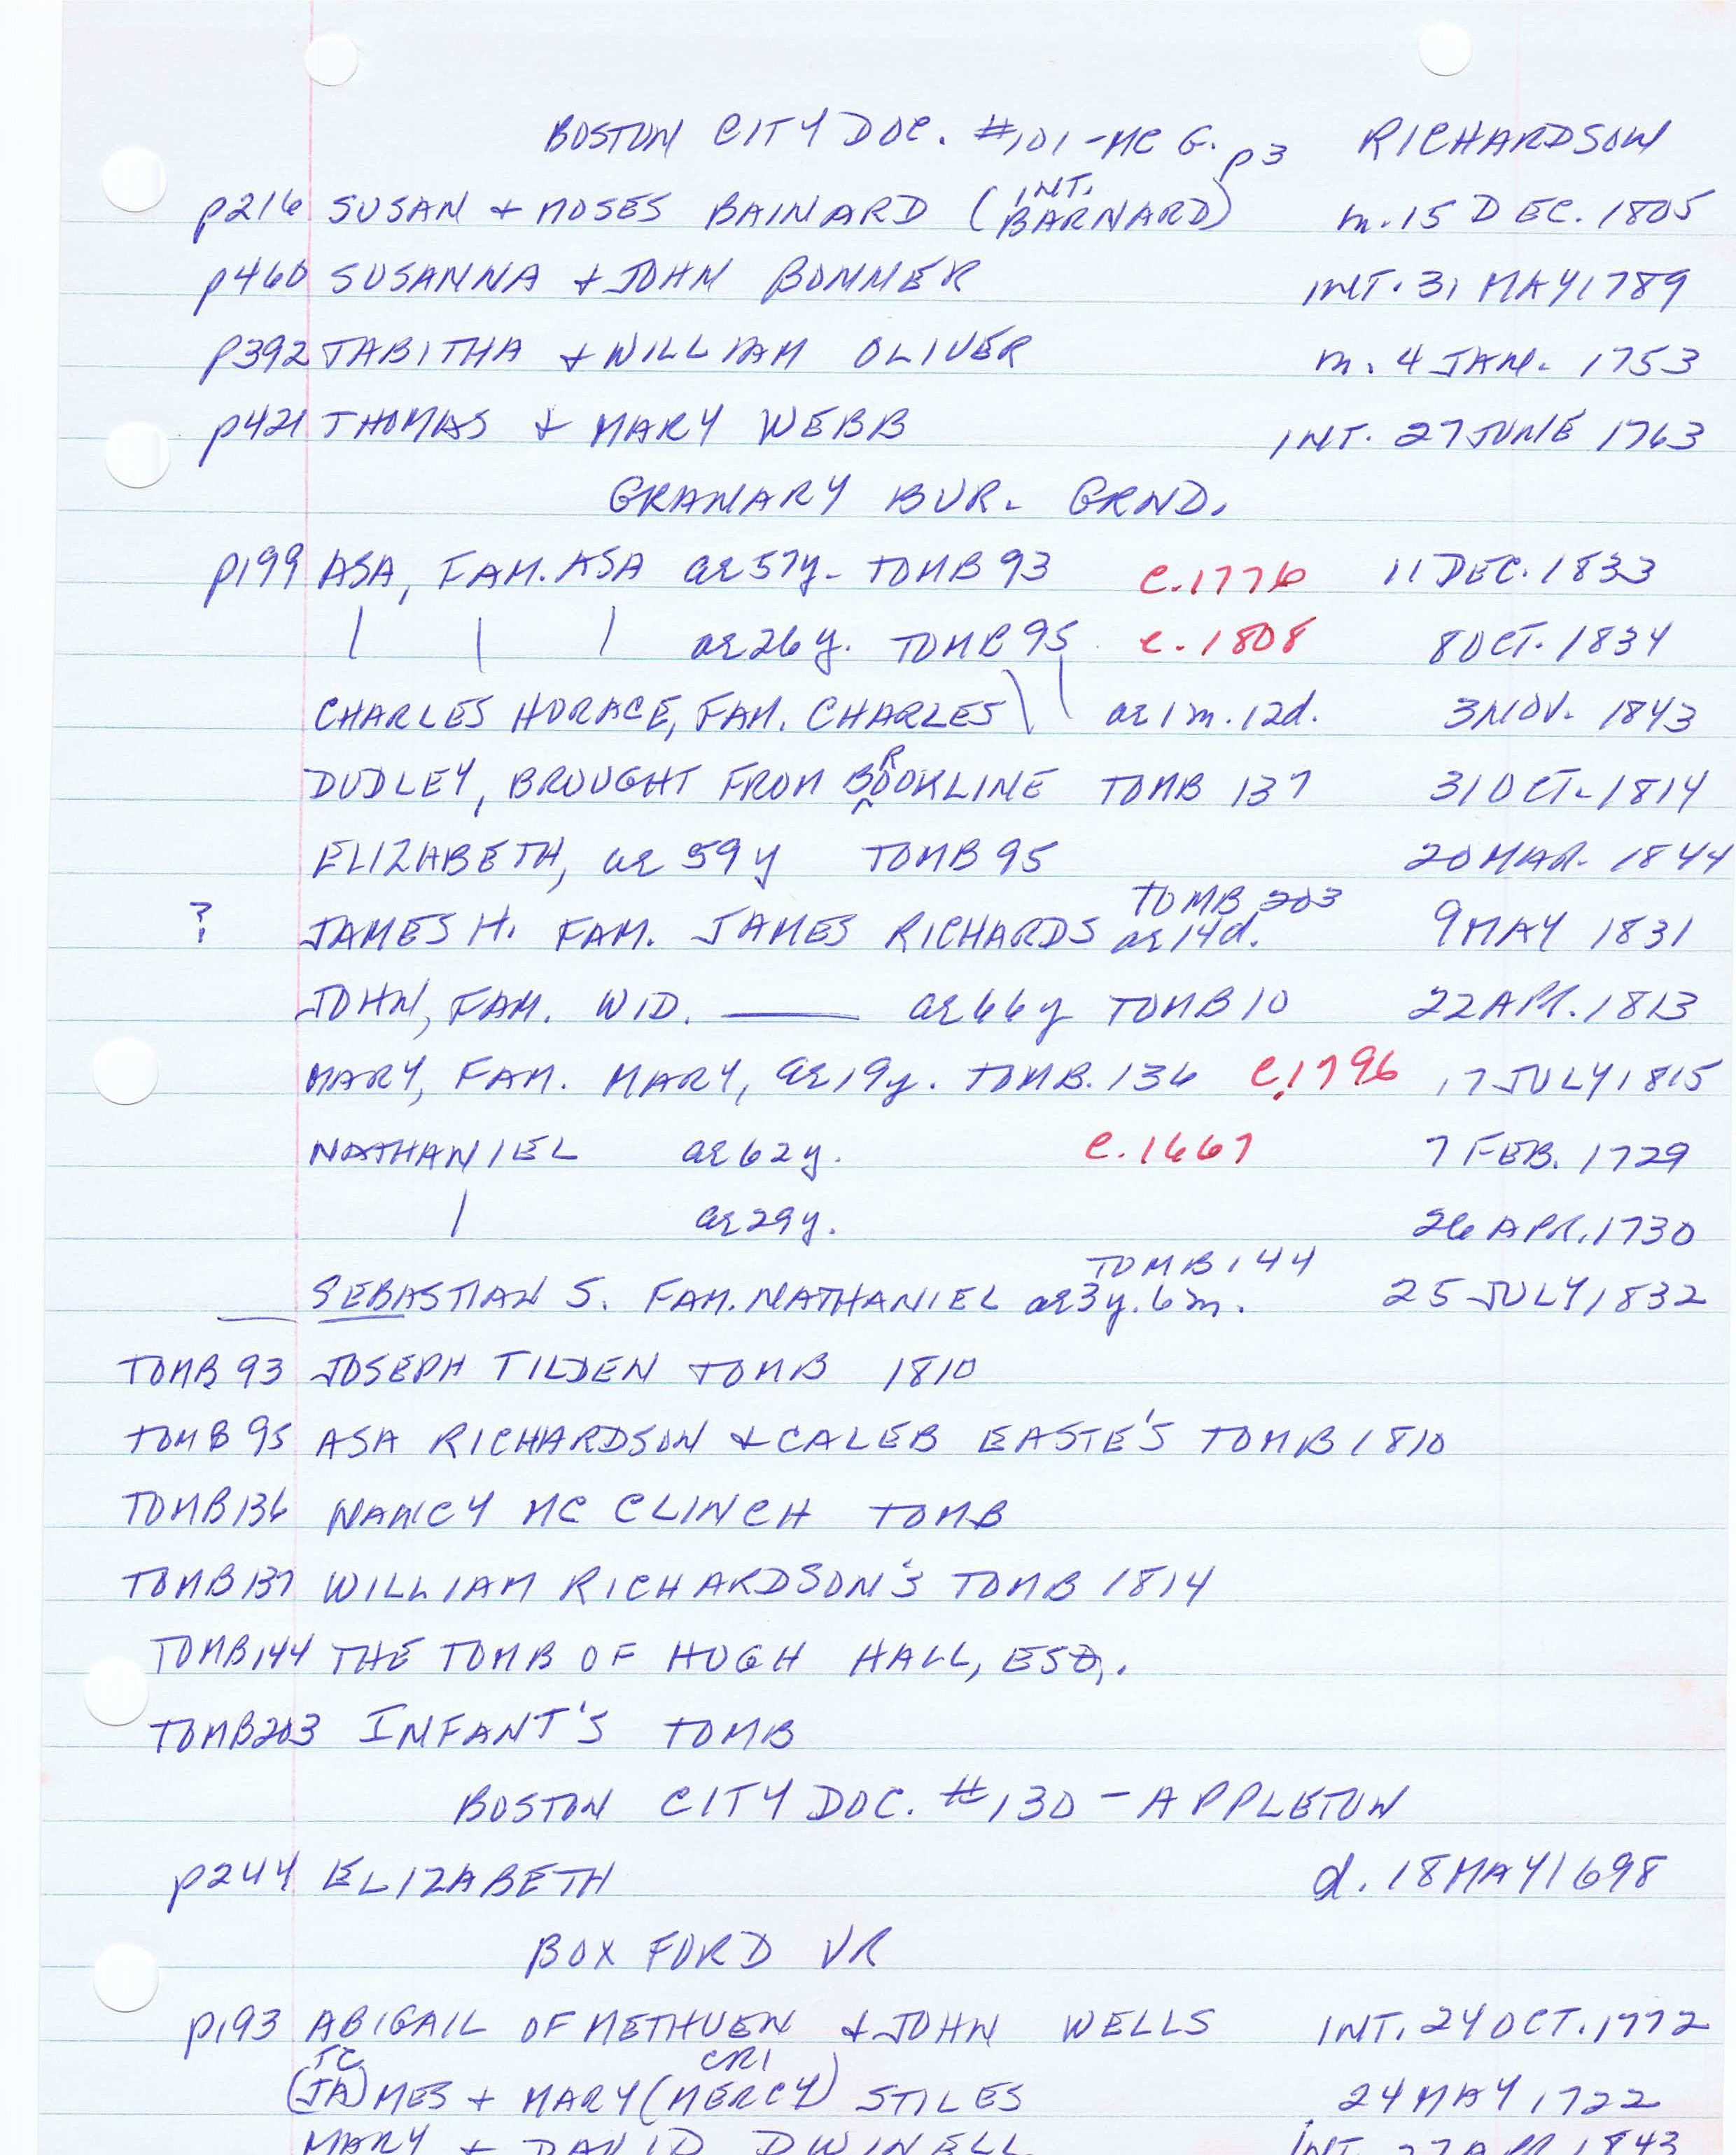 BOSTON CITY DOC. #101-MC G. p3 RICHARDSON
p216 SUSAN + MOSES BAINARD (INT. BARNARD) m. 15 DEC. 1805
p460 SUSANNA + JOHN BONNER INT. 31 MAY 1789
p392 TABITHA + WILLIAM OLIVER m. 4 JAN. 1753
p421 THOMAS + MARY WEBB INT. 27 JUNE 1763
GRANARY BUR. GRND.
p199 ASA, FAM. ASA ae 57y- TOMB 93 c.1776 11 DEC. 1833
| | | ae 26y. TOMB 95 c.1808 8 OCT. 1834
CHARLES HORACE, FAM. CHARLES \ \ ae 1m. 12d. 3 NOV. 1843
DUDLEY, BROUGHT FROM BROOKLINE TOMB 137 31 OCT. 1814
ELIZABETH, ae 59y TOMB 95 20 MAR. 1844
? JAMES H. FAM. JAMES RICHARDS TOMB 203 ae 14d. 9 MAY 1831
JOHN, FAM. WID. —— ae 66y TOMB 10 22 APR. 1813
MARY, FAM. MARY, ae 19y. TOMB. 136 c.1796 17 JULY 1815
NATHANIEL ae 62y. c.1667 7 FEB. 1729
| ae 29y. 26 APR. 1730
SEBASTIAN S. FAM. NATHANIEL TOMB 144 ae 3y. 6m. 25 JULY 1832
TOMB 93 JOSEPH TILDEN TOMB 1810
TOMB 95 ASA RICHARDSON + CALEB EASTE'S TOMB 1810
TOMB 136 NANCY MC CLINCH TOMB
TOMB 137 WILLIAM RICHARDSON'S TOMB 1814
TOMB 144 THE TOMB OF HUGH HALL, ESQ.
TOMB 203 INFANT'S TOMB
BOSTON CITY DOC. #130 - APPLETON
p244 ELIZABETH d. 18 MAY 1698
BOXFORD VR
p193 ABIGAIL OF METHUEN + JOHN WELLS INT. 24 OCT. 1772
TC CR1
(JA)MES + MARY (MERCY) STILES 24 MAY 1722
MARY + DAVID DWINELL INT. 27 APR. 1843